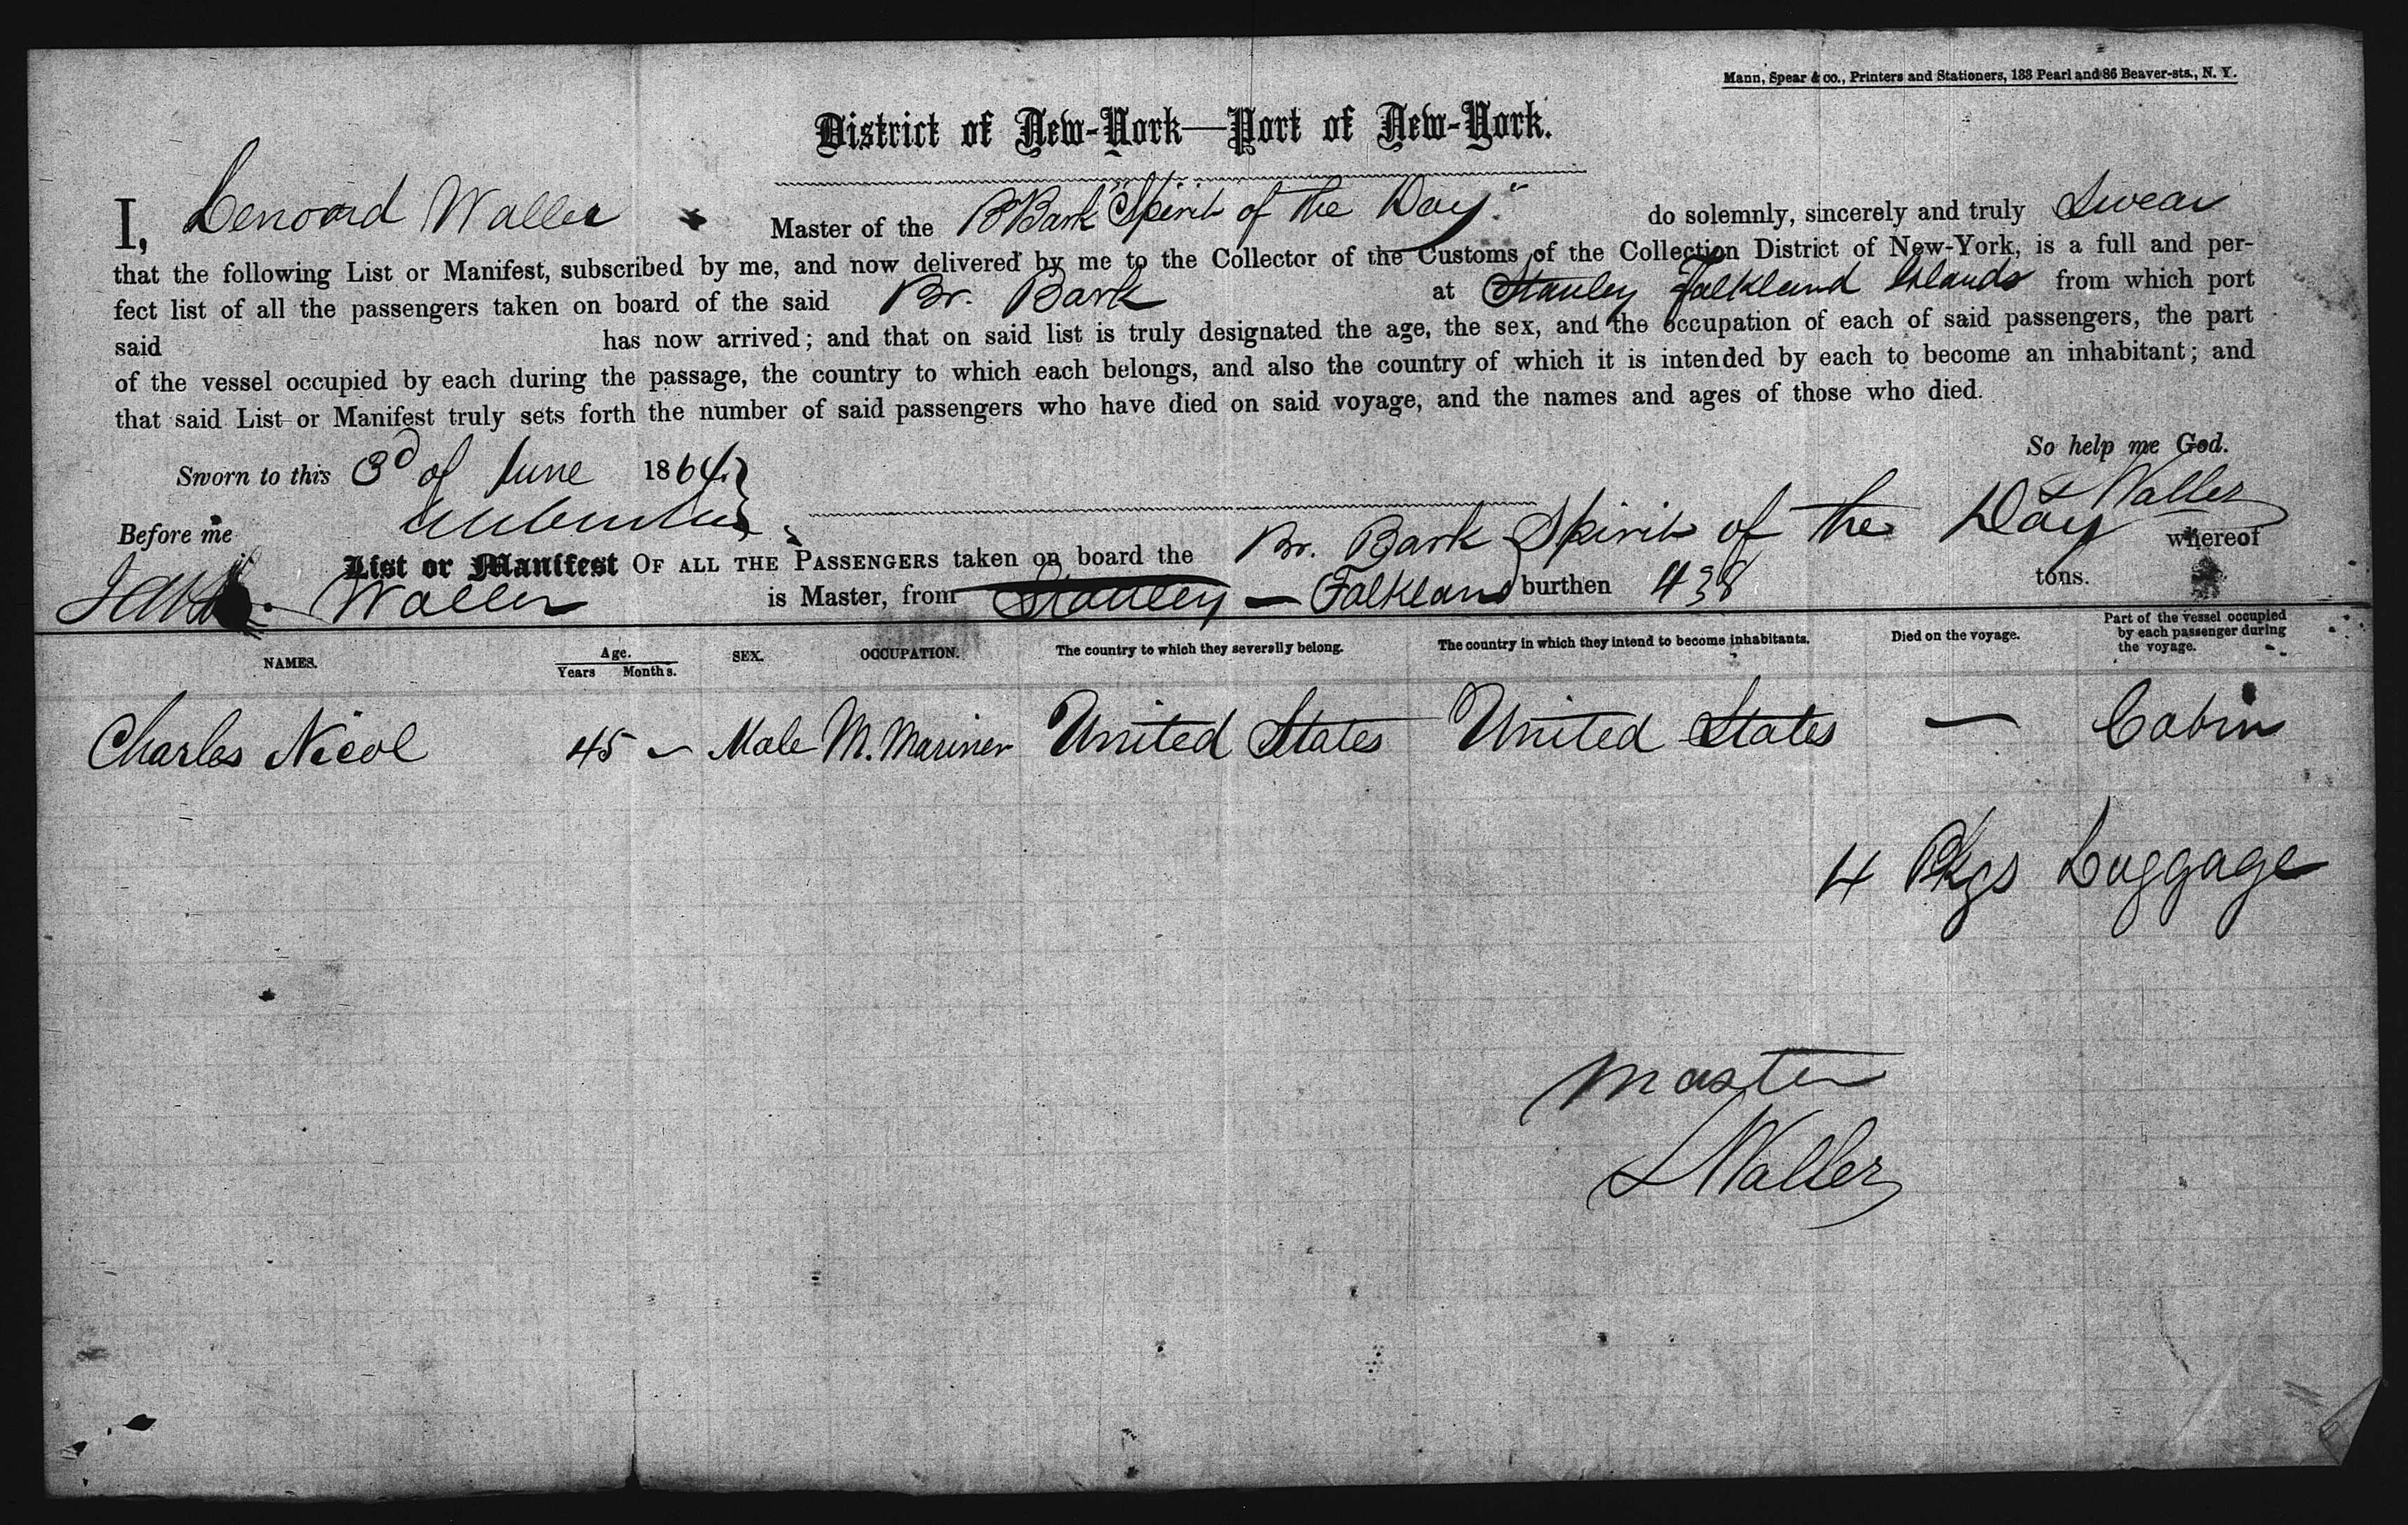 Mann, Spear & co., Printers and Stationers, 133 Pearl and 86 Beaver-sts., N. Y.
District of New-York—Port of New-York.
I, Lenoard Waller Master of the B Bark "Spirit of the Day" do solemnly, sincerely and truly Swear
that the following List or Manifest, subscribed by me, and now delivered by me to the Collector of the Customs of the Collection District of New-York, is a full and per-
fect list of all the passengers taken on board of the said Br. Bark at Stanley Falkland Islands from which port
said has now arrived; and that on said list is truly designated the age, the sex, and the occupation of each of said passengers, the part
of the vessel occupied by each during the passage, the country to which each belongs, and also the country of which it is intended by each to become an inhabitant; and
that said List or Manifest truly sets forth the number of said passengers who have died on said voyage, and the names and ages of those who died.
So help me God.
Sworn to this 3d of June 1864
L Waller
Before me
List or Manifest OF ALL THE PASSENGERS taken on board the Br. Bark Spirit of the Day whereof
Waller is Master, from Stanley — Falkland burthen 438 tons.
NAMES. Age. Years Months. SEX. OCCUPATION. The country to which they severally belong. The country in which they intend to become inhabitants. Died on the voyage. Part of the vessel occupied by each passenger during the voyage.
Charles Nicol 45 – Male M. Mariner United States United States — Cabin
4 Pkgs Luggage
Master
L Waller